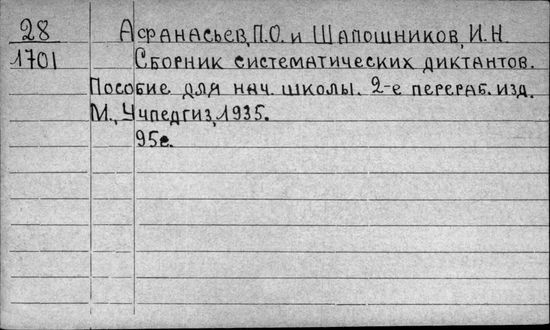 28 Афанасьев, П.О. и Шапошников, И.Н.
1701 Сборник систематических диктантов.
Пособие для нач. школы. 2-е перераб. изд.
М., Учпедгиз, 1935.
95с.